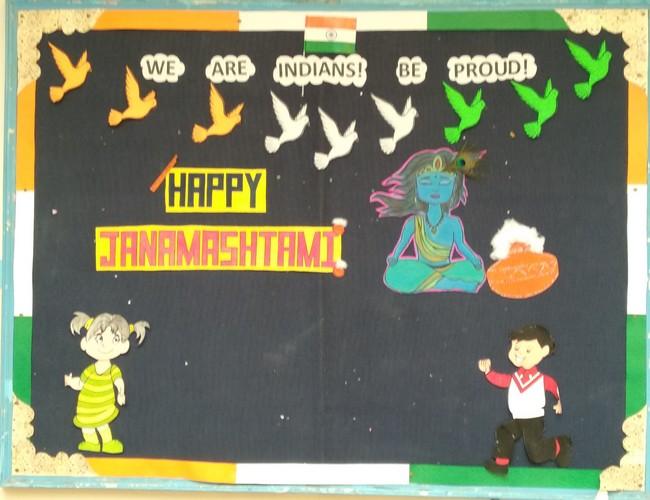 WE ARE INDIANS! BE PROUD!
HAPPY
JANAMASHTAMI